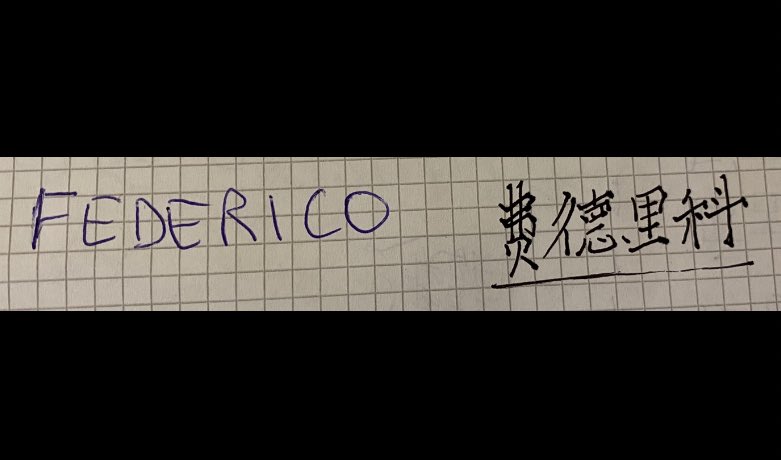 FEDERICO 費德里科